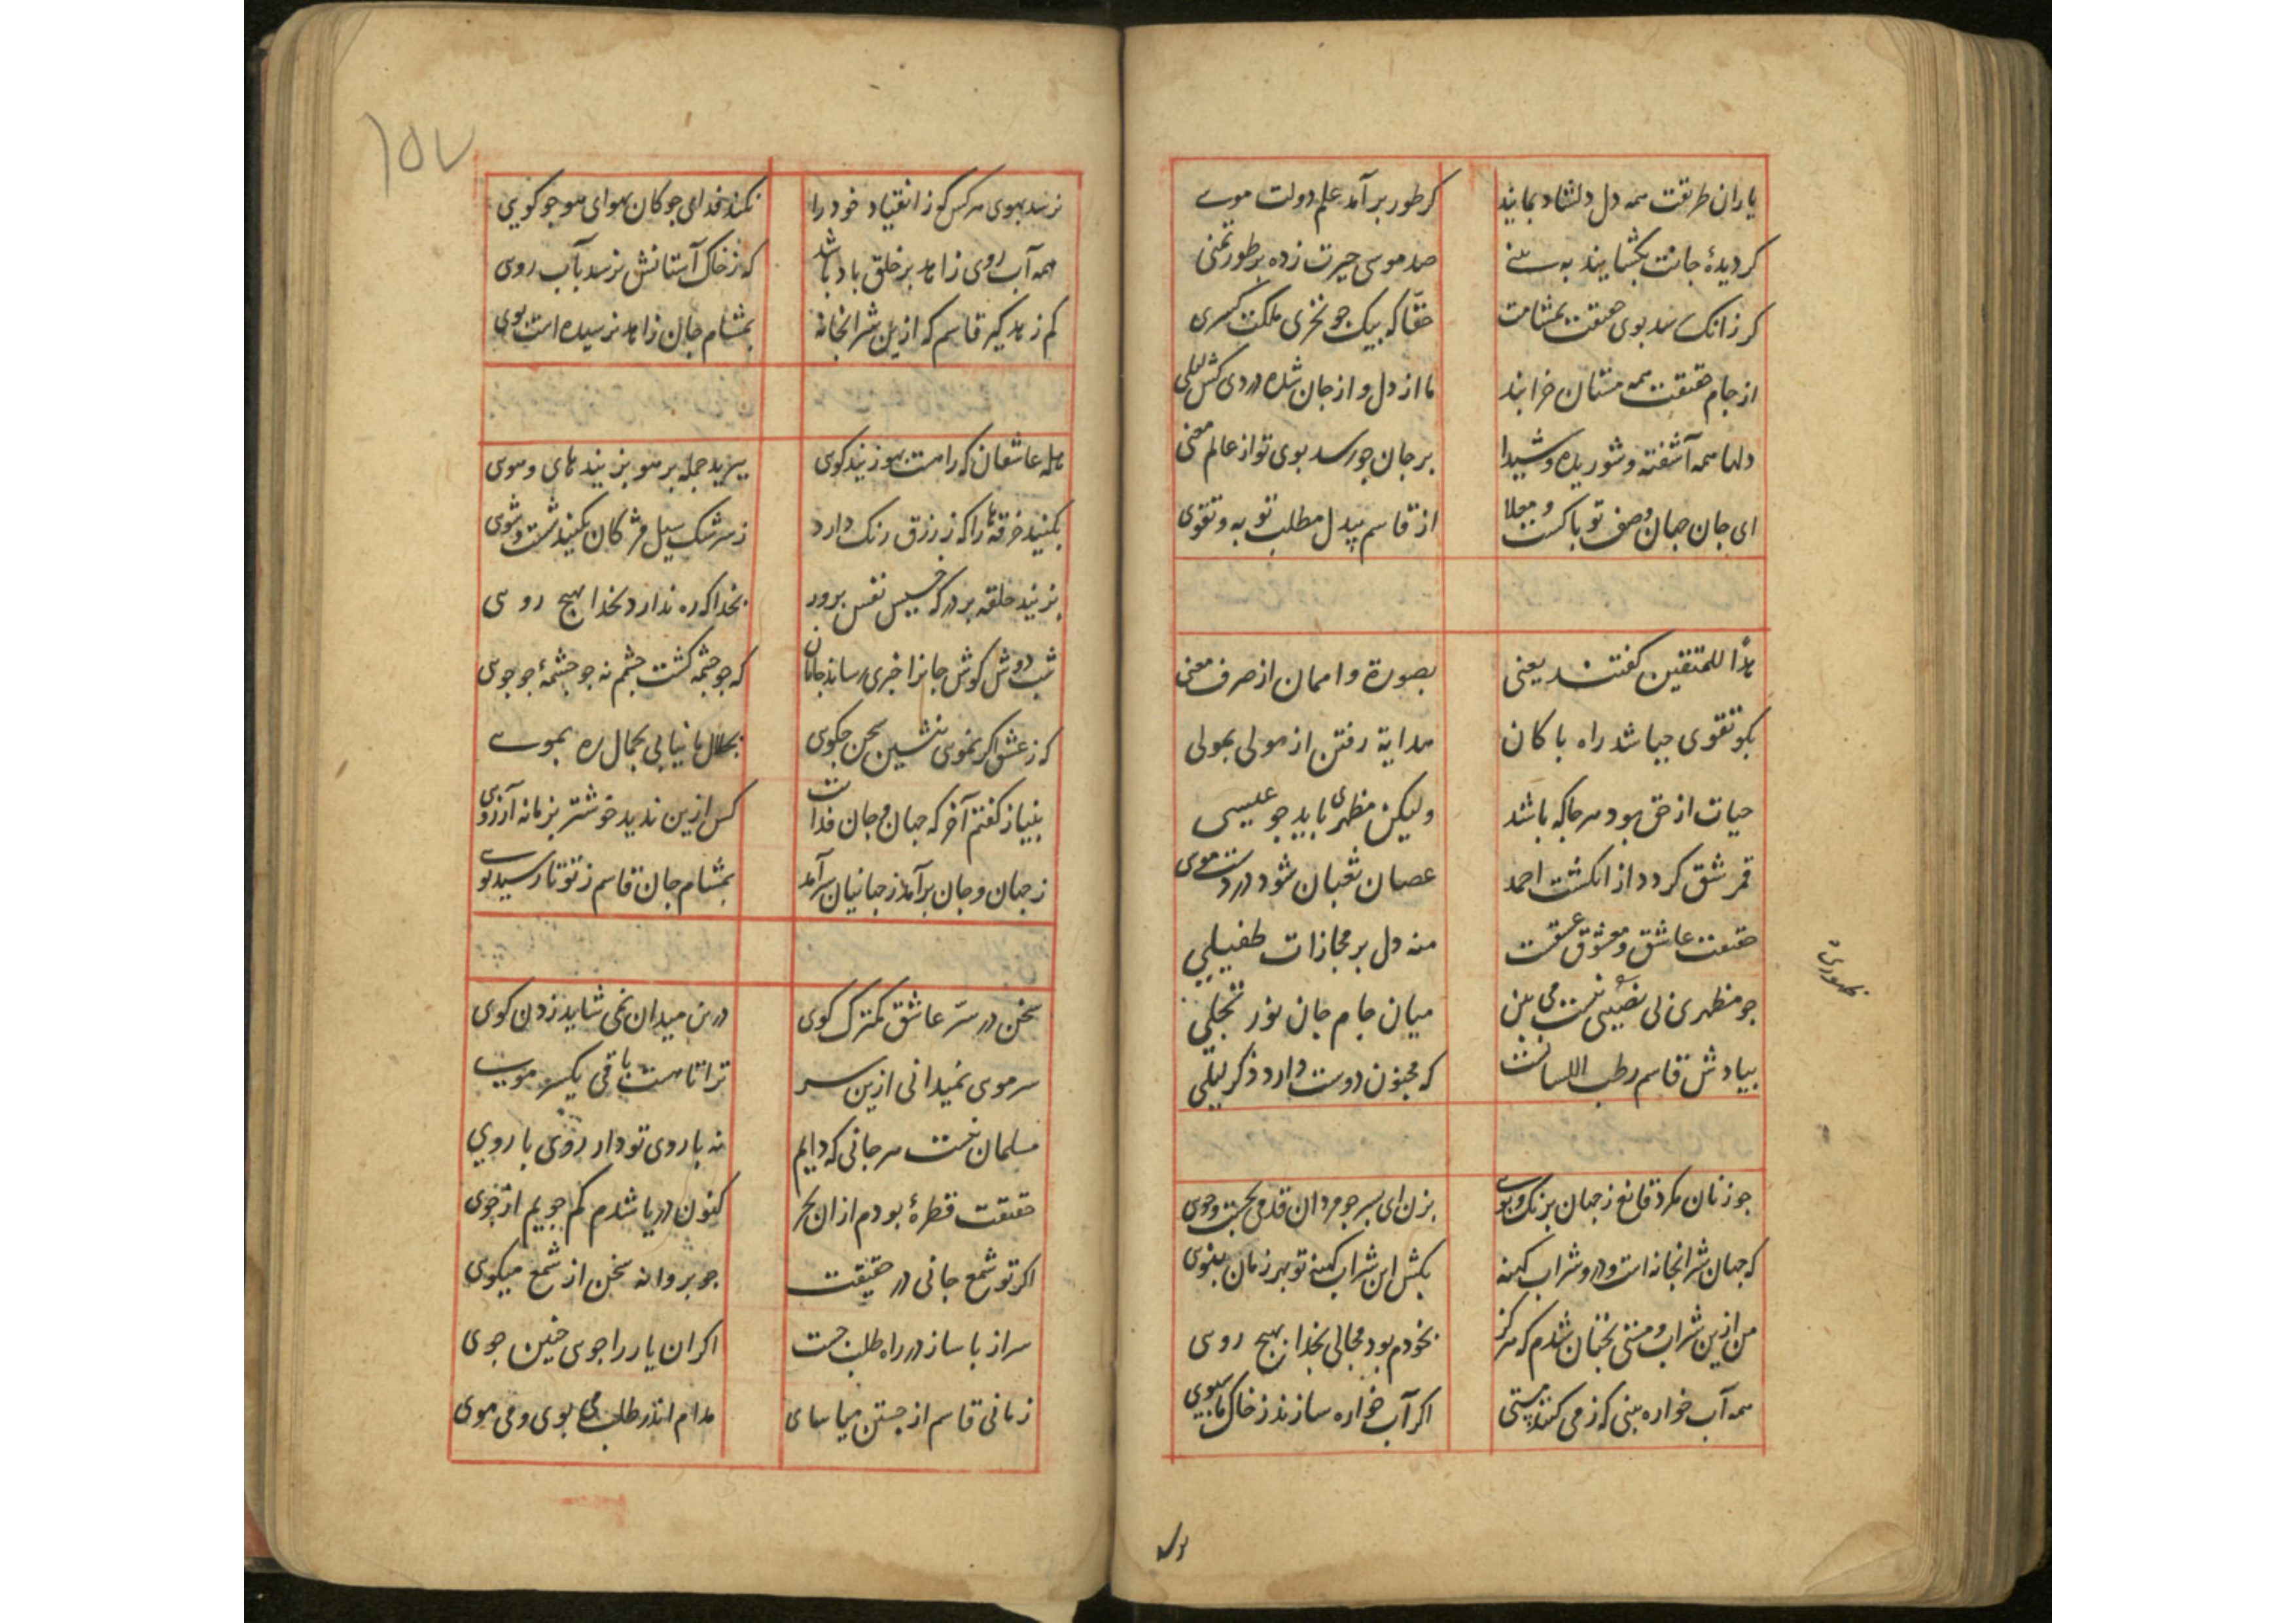 یاران طریقت همه دل دلشاد بمانید
کر طور برآمد علم دولت موسی
کر دیدهٔ جانت بکشایند به بینی
صد موسی حیرت زده بر طور تمنی
کر زانک رسد بوی حقیقت بمشامت
حقا که بیک جو نخری ملکت کسری
از جام حقیقت همه مستان خرابند
ما از دل و از جان شده دردی کش لیلی
دلها همه آشفته و شوریده و شیدا
بر جان جو رسد بوی تو از عالم معنی
ای جان جهان وصف تو باکست و معلا
از قاسم بیدل مطلب توبه و تقوی
هدا للمتقین کفتند یعنی
بصورة وا ممان از صرف معنی
بکو تقوی جیا شد راه باکان
هدایة رفتن از مولی بمولی
حیات از حق بود هر جا که باشد
ولیکن مظهری باید جو عیسی
قمر شق کردد از انکشت احمد
عصبان ثعبان شود در دست موسی
حقیقت عاشق و معشوق عشقست
منه دل بر مجازات طفیلی
جو مظهری نی نصیبی نیست می بین
میان جام جان نور تجلی
بیادش قاسم رطب اللسانست
که مجنون دوست دارد ذکر لیلی
جو زنان مکرد قانع ز جهان برنک و بوی
بزن ای بسر جو مردان قدمی بجست و جوی
که جهان شرابخانه است و درو شراب کهنه
بکش این شراب کهنه تو بهر زمان بنوی
من ازین شراب و مستی بجنان شدم که هرکز
بخودم بود مجالی بخدا بهیج روی
همه آب خواره بینی که ز می کنند مستی
اکر آب خواره سازند ز خاک ما سبوی
ظهوری
نرسد بهوی هر کس کو ز انقیاد خود را
نکند خدای جو کان بهوای هو جو کویی
همه آب روی زاهد بر خلق باد باشد
که ز خاک آستانش نرسد بآب روی
کم زهد کیر قاسم که ازین شرابخانه
بمشام جان زاهد نرسیده است بوی
هله عاشقان که رامست بهو زنید کوی
ببرید جمله بر هو بزنید های و هوی
بکنید خرقه‌ها را که ز زرق رنک دارد
ز سرشک سیل مژکان بکنید شست و شوی
بزنید حلقه بر در که خسیس نفس برور
بخدا که ره ندارد بخدا بهیج روی
شب دوش کوش جانرا خبری رساند جانان
که جو جشمه کشت جشم نه جو جشمهٔ جو جوی
که ز عشق اکر بموی نشین سخن جکوی
بجلال ما نیابی بجمال ره بموی
بنیاز کفتم آخر که جهان و جان فدایت
کس ازین ندید خوشتر بزمانه آرزوی
ز جهان و جان برآمد ز جهانیان سرآمد
بمشام جان قاسم ز تو تا رسید بوی
سخن در سر عاشق کمترک کوی
درین میدان نمی شاید زدن کوی
سر موی نمیدانی ازین سر
ترا تا هست باقی یکسر موی
مسلمان نیست هر جانی که دایم
نه با روی تو دارد روی با روی
حقیقت قطرهٔ بودم ازان بحر
کنون دریا شدم کم جویم از جوی
اکر تو شمع جانی در حقیقت
جو بروانه سخن از شمع میکوی
سر از با ساز در راه طلب جست
اکر ان یار را جوی جنین جوی
زمانی قاسم از جستن میاسای
مدام اندر طلب می بوی و می موی
۱۵۷